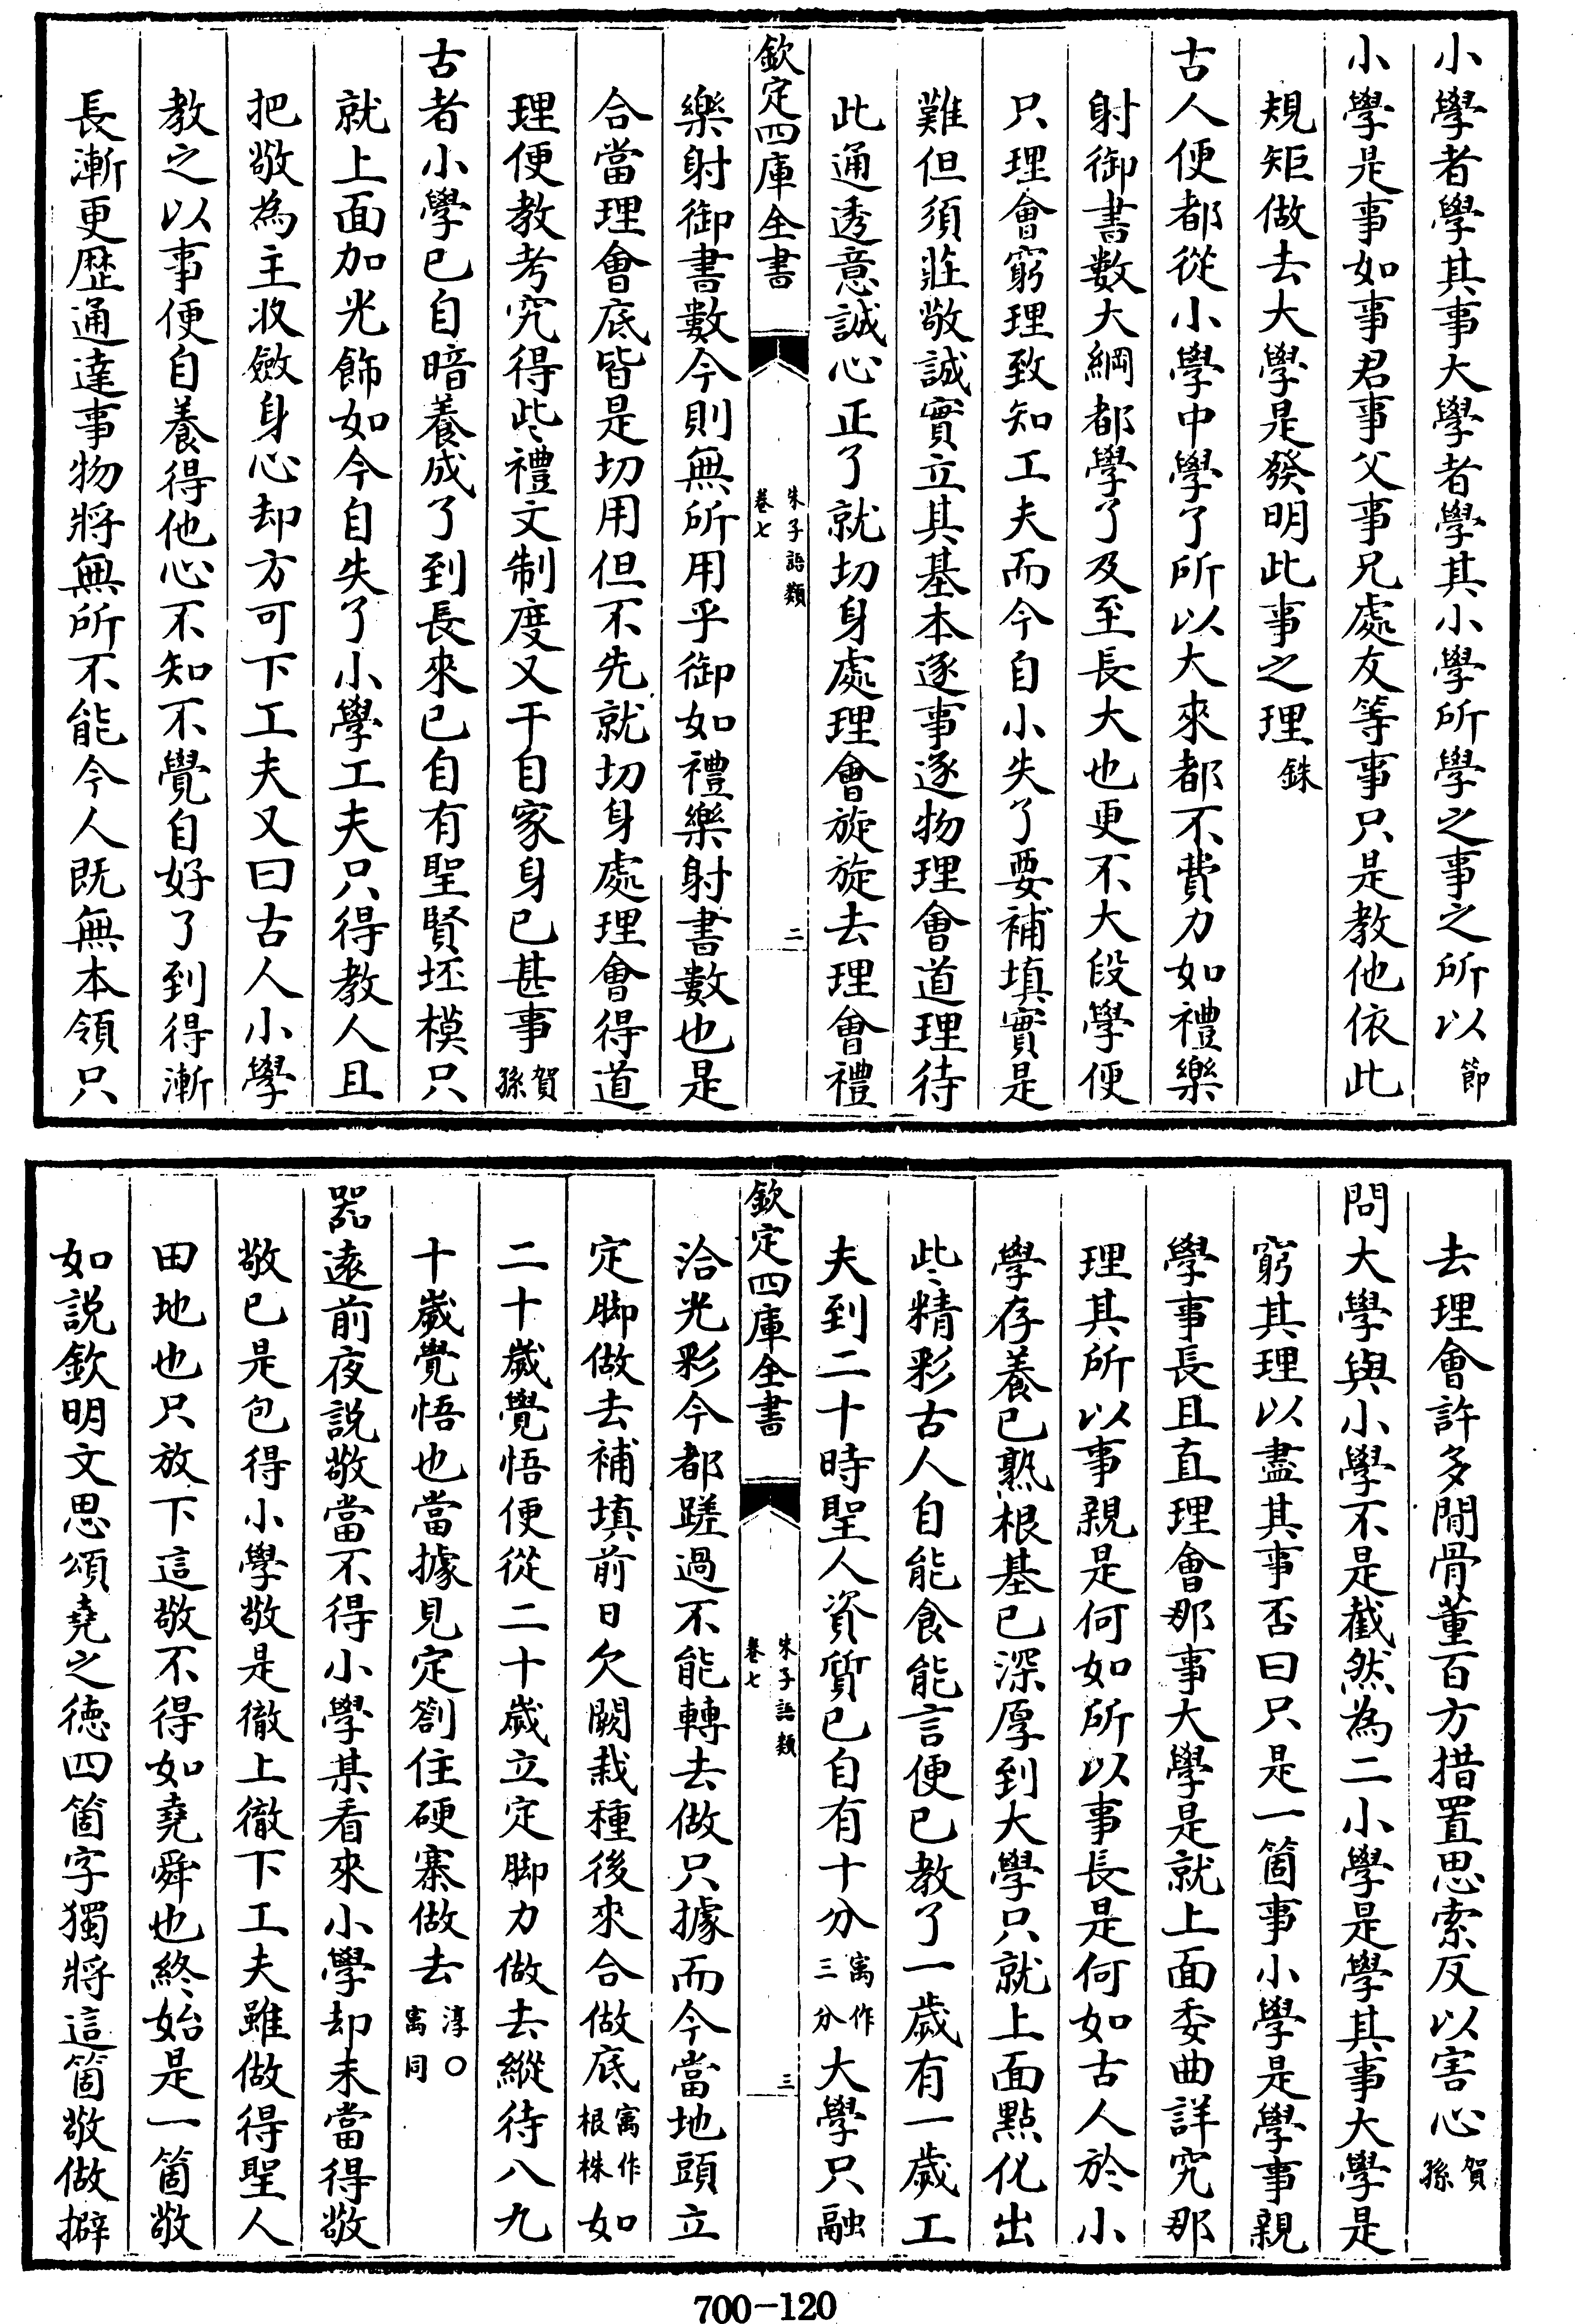 小學者學其事大學者學其小學所學之事之所以節
小學是事如事君事父事兄處友等事只是教他依此
規矩做去大學是發明此事之理銖
古人便都從小學中學了所以大來都不費力如禮樂
射御書數大綱都學了及至長大也更不大段學便
只理會窮理致知工夫而今自小失了要補填實是
難但須莊敬誠實立其基本逐事逐物理會道理待
此通透意誠心正了就切身處理會旋旋去理會禮
欽定四庫全書 朱子語類 卷七 二
樂射御書數今則無所用乎御如禮樂射書數也是
合當理會底皆是切用但不先就切身處理會得道
理便教考究得些禮文制度又干自家身已甚事賀孫
古者小學已自暗養成了到長來已自有聖賢坯模只
就上面加光飾如今自失了小學工夫只得教人且
把敬為主收斂身心却方可下工夫又曰古人小學
教之以事便自養得他心不知不覺自好了到得漸
長漸更歷通達事物將無所不能今人既無本領只
去理會許多閒骨董百方措置思索反以害心賀孫
問大學與小學不是截然為二小學是學其事大學是
窮其理以盡其事否曰只是一箇事小學是學事親
學事長且直理會那事大學是就上面委曲詳究那
理其所以事親是何如所以事長是何如古人於小
學存養已熟根基已深厚到大學只就上面點化出
些精彩古人自能食能言便已教了一歲有一歲工
夫到二十時聖人資質已自有十分㝢作三分大學只融
欽定四庫全書 朱子語類 卷七 三
洽光彩今都蹉過不能轉去做只據而今當地頭立
定脚做去補填前日欠闕栽種後來合做底㝢作根株如
二十歲覺悟便從二十歲立定脚力做去縱待八九
十歲覺悟也當據見定劄住硬寨做去淳○㝢同
器遠前夜說敬當不得小學某看來小學却未當得敬
敬已是包得小學敬是徹上徹下工夫雖做得聖人
田地也只放下這敬不得如堯舜也終始是一箇敬
如說欽明文思頌堯之德四箇字獨將這箇敬做擗
700-120